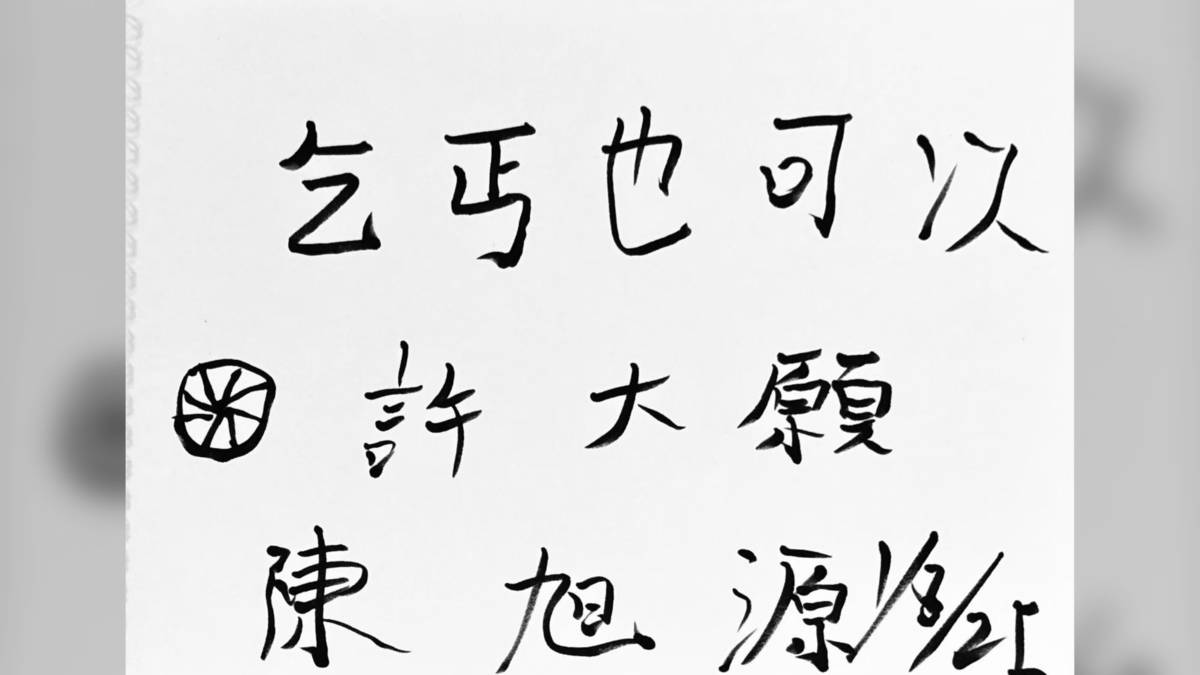 乞丐也可以
許大願
陳旭源 1/8/25